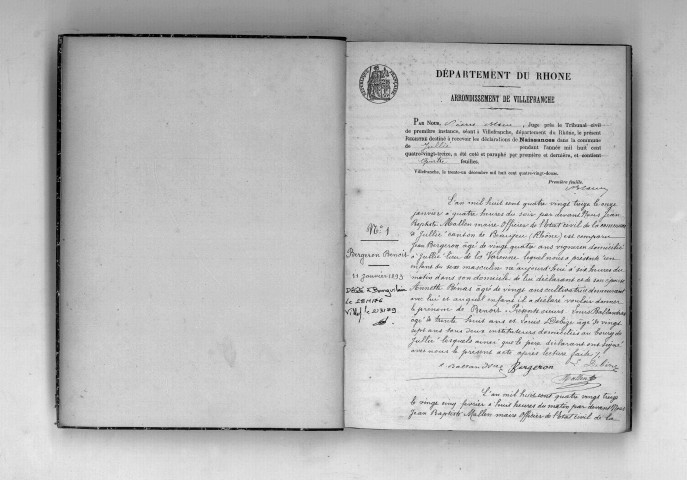 DÉPARTEMENT DU RHONE
ARRONDISSEMENT DE VILLEFRANCHE
PAR NOUS, Pierre, Juge près le Tribunal civil
de première instance, séant à Villefranche, département du Rhône, le présent
REGISTRE destiné à recevoir les déclarations de Naissances dans la commune
de Jullié pendant l'année mil huit cent
quatre-vingt-treize, a été coté et paraphé par première et dernière, et contient
feuilles.
Villefranche, le trente-un décembre mil huit cent quatre-vingt-douze.
Première feuille.
L'an mil huit cent quatre vingt treize le onze
janvier à quatre heures du soir par devant Nous Jean
Baptiste Mallen maire officier de l'état civil de la commune
de Jullié canton de Beaujeu (Rhône) est comparu
N° 1
Bergeron Benoit
11 janvier 1893
Décédé à
le
Jean Bergeron âgé de vingt quatre ans vigneron domicilié
à Jullié lieu de la Varenne lequel nous a présenté un
enfant du sexe masculin né aujourd'hui à six heures du
matin dans son domicile de lui déclarant et de son épouse
Annette âgée de vingt ans cultivatrice demeurant
avec lui et auquel enfant il a déclaré vouloir donner
le prénom de Benoit. Présents sieurs Louis
âgé de trente ans et Louis Debize âgé de vingt
sept ans tous deux instituteurs domiciliés au bourg de
Jullié lesquels ainsi que le père déclarant ont signé
avec nous le présent acte après lecture faite
Bergeron L. Debize
Mallen
L'an mil huit cent quatre vingt treize
le vingt cinq février à huit heures du matin par devant Nous
Jean Baptiste Mallen maire officier de l'état civil de la